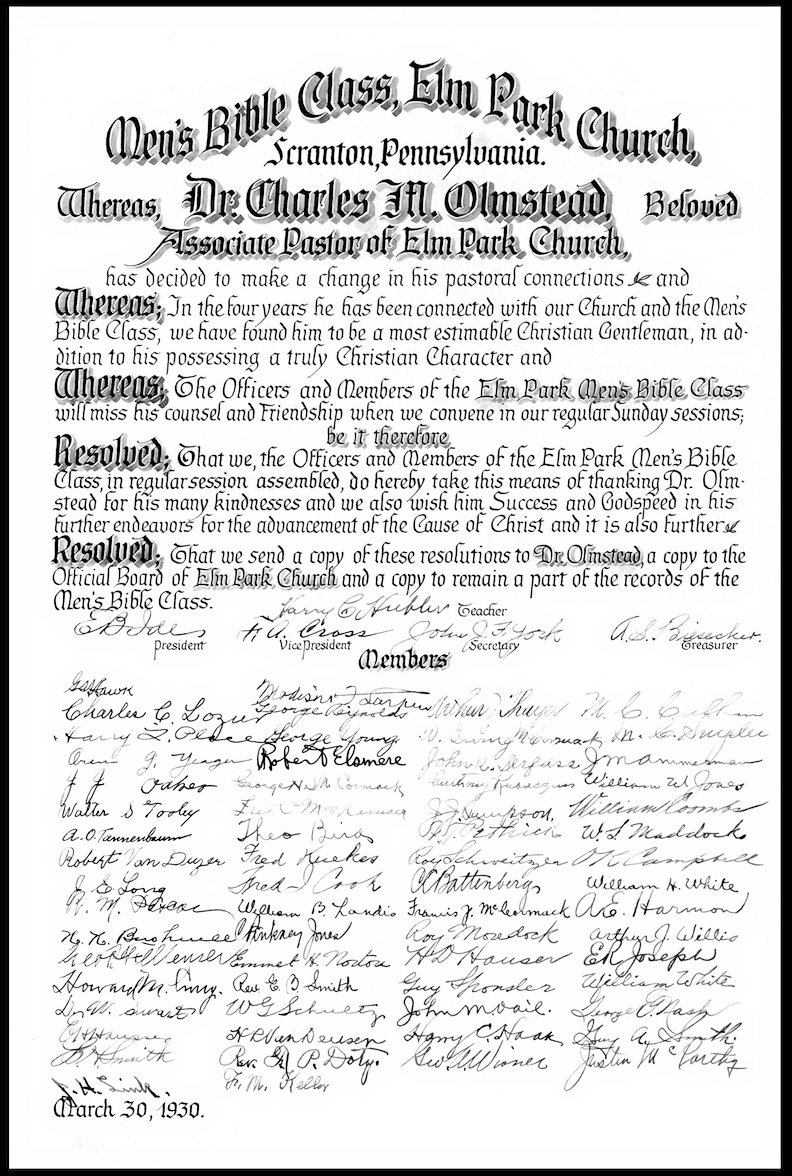 Men's Bible Class, Elm Park Church,
Scranton, Pennsylvania.
Whereas, Dr. Charles M. Olmstead, Beloved
Associate Pastor of Elm Park Church,
has decided to make a change in his pastoral connections and
Whereas; In the four years he has been connected with our Church and the Men's
Bible Class, we have found him to be a most estimable Christian Gentleman, in ad-
dition to his possessing a truly Christian Character and
Whereas; The Officers and Members of the Elm Park Men's Bible Class
will miss his counsel and Friendship when we convene in our regular Sunday sessions;
be it therefore
Resolved; That we, the Officers and Members of the Elm Park Men's Bible
Class, in regular session assembled, do hereby take this means of thanking Dr. Olm-
stead for his many kindnesses and we also wish him Success and Godspeed in his
further endeavors for the advancement of the Cause of Christ and it is also further
Resolved; That we send a copy of these resolutions to Dr. Olmstead, a copy to the
Official Board of Elm Park Church and a copy to remain a part of the records of the
Men's Bible Class.
Harry C. Hubler Teacher
E B Ide F. A. Cross John J. F. York A. S. Biesecker.
President Vice President Secretary Treasurer
Members
Hawk
Charles C. Lozier George Reynolds Arthur Thayer M. C.
Harry L. Place George Young W.
G. Yeager Robert Elsmere John
J J Oakes George H. McCormack Anthony William W Jones
Walter S Tooley J. J. Simpson. William Coombs
A. O. Tannenbaum Theo Bird W. S Maddocks
Robert Van Duzer Fred Ruekes Roy Schweitzer Campbell
J. E. Long Fred J Cook Battenberg William H. White
R. M. William B. Landis Francis J. McCormack A. E. Harmon
Pinkney Jones Roy Murdock Arthur J. Willis
Emmet H. Norton H D Hauser Joseph
Howard M. Rev. E. B Smith Guy Sponsler William White
Dr. W. Swart W G Schultz John M Vail. George Nash
H P Van Deusen Harry C. Haak Guy A. Smith.
Smith Rev. P. Doty. Geo A. Wisner Justin McCarthy
J. H. Link. F. M. Keller
March 30, 1930.